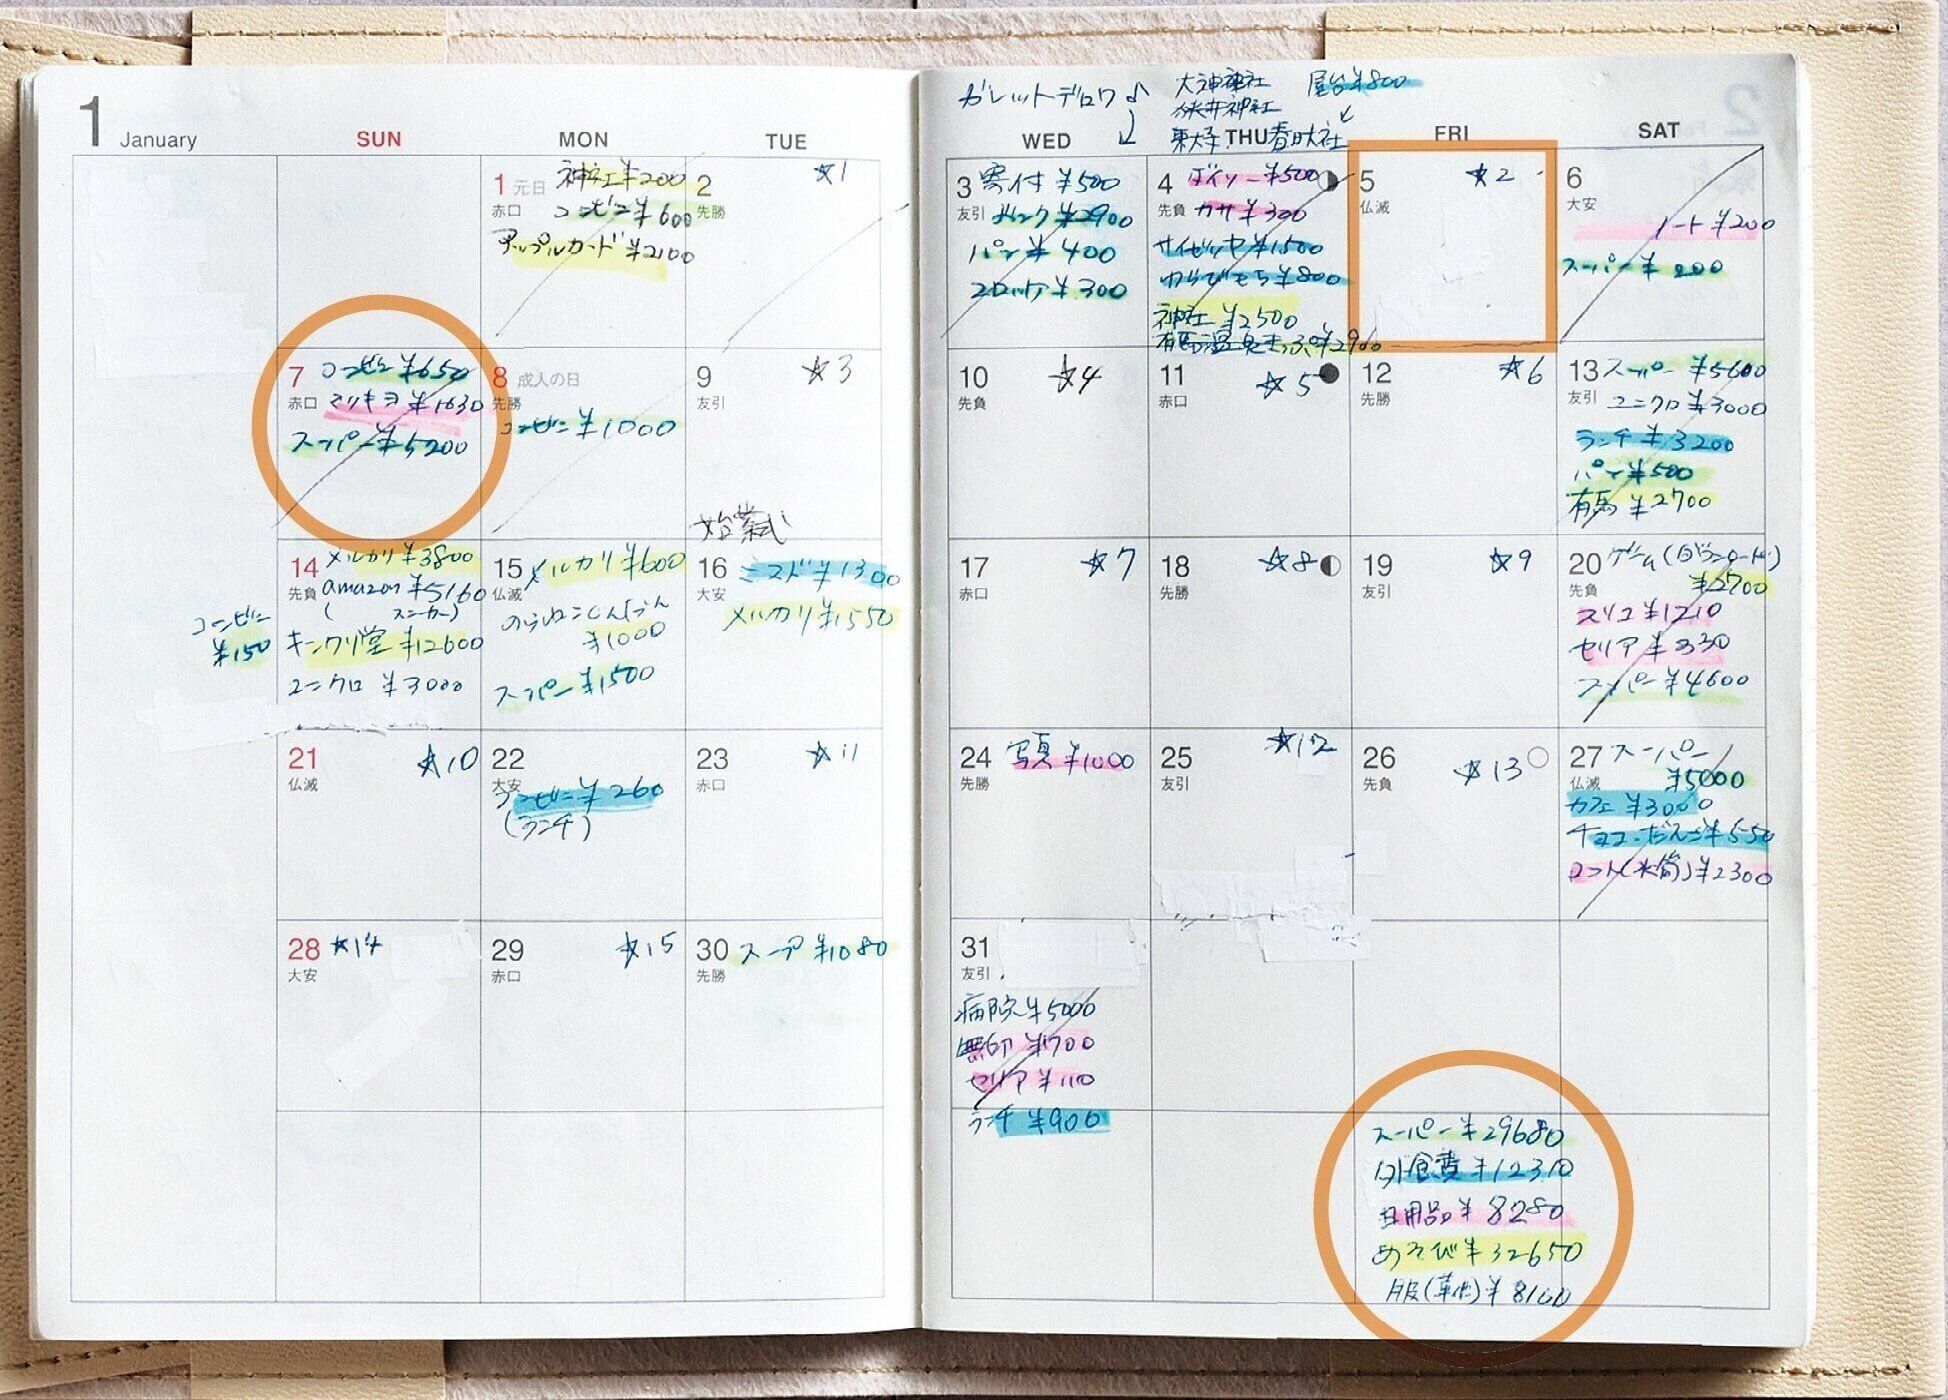 1 January
SUN MON TUE
1 元日 赤口
神社 ¥200
コンビニ ¥600
アップルカード ¥2100
2 先勝
☆1
7 赤口
コンビニ ¥650
マツキヨ ¥1630
スーパー ¥5200
8 成人の日 先勝
コンビニ ¥1000
9 友引
☆3
始業式
14 先負
メルカリ ¥3800
amazon ¥5160
( スニーカー)
キンクリ堂 ¥12600
ユニクロ ¥3000
コンビニ
¥150
15 仏滅
メルカリ ¥600
¥1000
スーパー ¥1500
16 大安
ミスド ¥1300
メルカリ ¥1550
21 仏滅
☆10
22 大安
コンビニ ¥260
(ランチ)
23 赤口
☆11
28 大安
☆14
29 赤口
☆15
30 先勝
ストア ¥1080
ガレットデロワ♪
大神神社
狭井神社
東大寺 春日大社
屋台 ¥800
WED THU FRI SAT
3 友引
寄付 ¥500
¥2900
パン ¥400
¥300
4 先負
ダイソー ¥500
カサ ¥300
サイゼリヤ ¥1500
わらびもち ¥800
神社 ¥2500
有馬温泉 ¥2900
5 仏滅
☆2
6 大安
ノート ¥200
スーパー ¥200
10 先負
☆4
11 赤口
☆5
12 先勝
☆6
13 友引
スーパー ¥5600
ユニクロ ¥3000
ランチ ¥3200
パン ¥500
有馬 ¥2700
17 赤口
☆7
18 先勝
☆8
19 友引
☆9
20 先負
ゲーム(ダウンロード)
¥2700
スリコ ¥1210
セリア ¥330
スーパー ¥4600
24 先勝
写真 ¥1000
25 友引
☆12
26 先負
☆13
27 仏滅
スーパー
¥5000
カフェ ¥3000
チョコ・だんご ¥550
(水筒) ¥2300
31 友引
病院 ¥5000
無印 ¥700
セリア ¥110
ランチ ¥900
スーパー ¥29680
外食費 ¥12310
日用品 ¥8280
あそび ¥32650
服(革靴) ¥8160